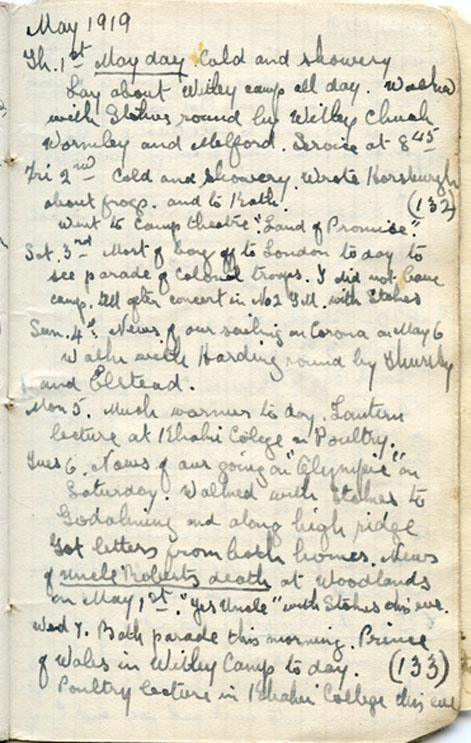 May 1919
Th. 1st May day Cold and showery
Lay about Witley camp all day. Walked
with Stokes round by Witley Church
Wormley and Melford. Service at 8 45
Fri 2nd Cold and showery. Wrote Horsburgh
about frogs. and to Kath. (132)
Went to Camp theatre. "Land of Promise".
Sat. 3rd Most of boys off to London to day to
see parade of Colonial troops. I did not leave
camp. till after concert in No2 Y.M. with Stokes
Sun. 4th. News of our sailing on Corona on May 6
Walk with Harding round by Thursley
and Elstead.
Mon 5. Much warmer to day. Lantern
lecture at Khaki College on Poultry.
Tues 6. News of our going on "Olympic" on
Saturday. Walked with Stokes to
Godalming and along high ridge
Got letters from both homes. News
of Uncle Roberts death at Woodlands
on May 1st. "Yes Uncle" with Stokes this eve.
Wed 7. Bath parade this morning. Prince
of Wales in Witley Camp to day. (133)
Poultry lecture in Khaki College this eve